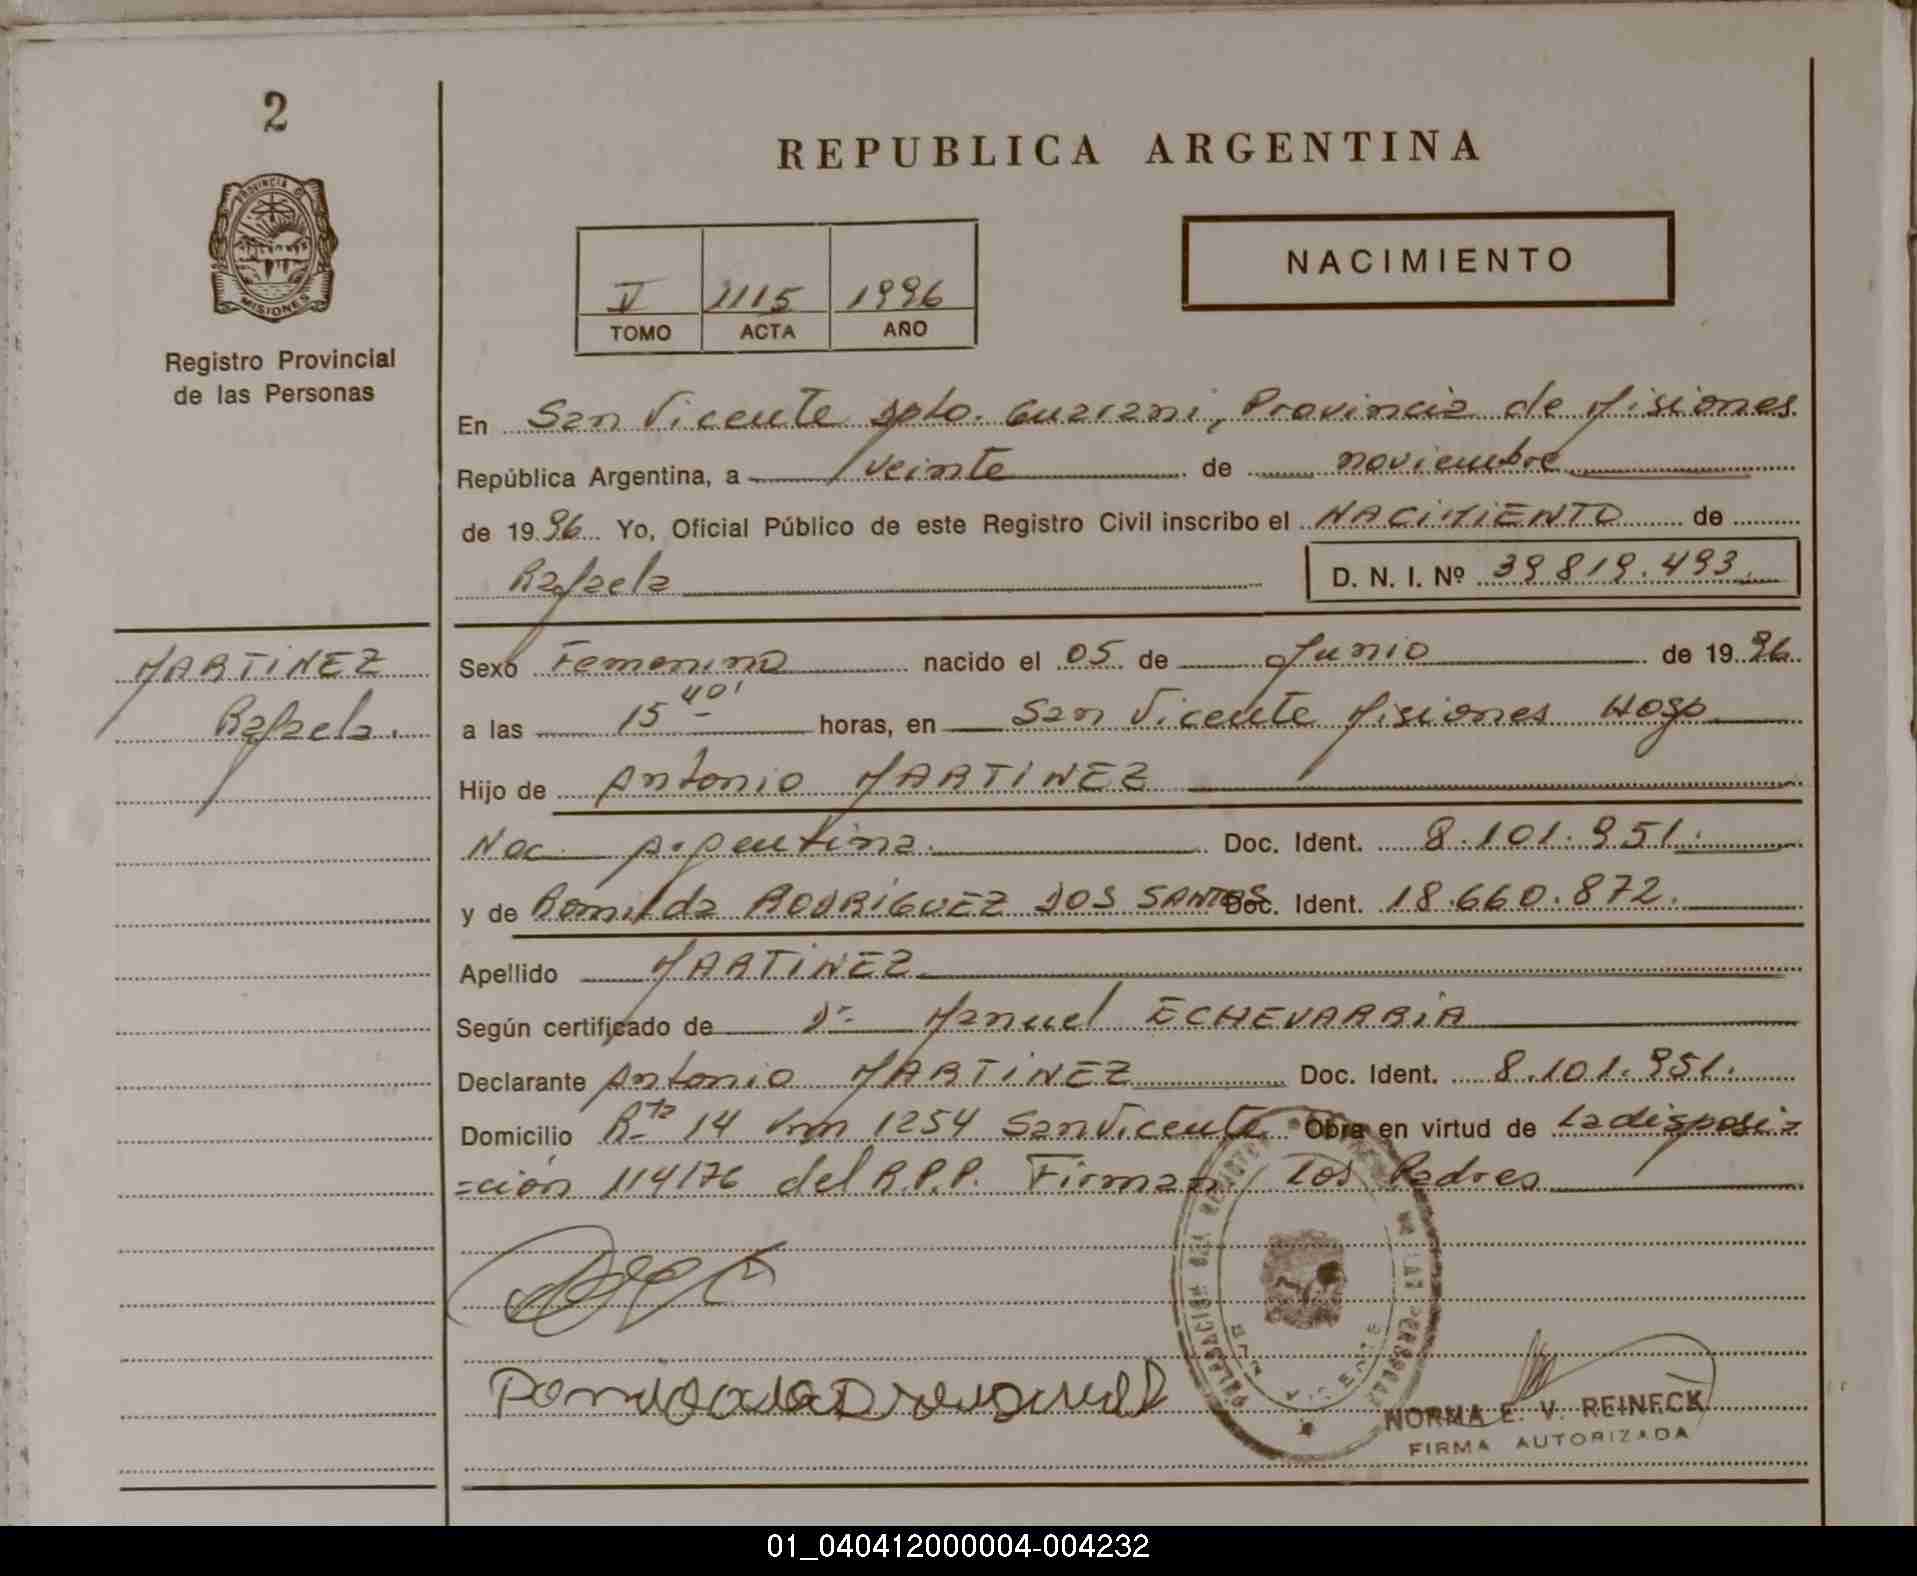 2
PROVINCIA DE
MISIONES
Registro Provincial
de las Personas
REPUBLICA ARGENTINA
V 1115 1996
TOMO ACTA AÑO
NACIMIENTO
En San Vicente Dpto. Guarani, Provincia de Misiones
República Argentina, a veinte de noviembre
de 1996 Yo, Oficial Público de este Registro Civil inscribo el NACIMIENTO de
Rafaela D. N. I. Nº 39819.493.
MARTINEZ
Rafaela.
Sexo Femenino nacido el 05 de Junio de 1996
a las 15 40' horas, en San Vicente Misiones Hogo
Hijo de Antonio MARTINEZ
Nac. Argentina. Doc. Ident. 8.101.951.
y de Romilda RODRIGUEZ DOS SANTOS Doc. Ident. 18.660.872.
Apellido MARTINEZ
Según certificado de Dr. Manuel ECHEVARRIA
Declarante Antonio MARTINEZ Doc. Ident. 8.101.951.
Domicilio Rta 14 km 1254 San Vicente Obra en virtud de La disposi=
=ción 114/76 del R.P.P. Firman Los Padres
NORMA E. V. REINECK
FIRMA AUTORIZADA
01_040412000004-004232